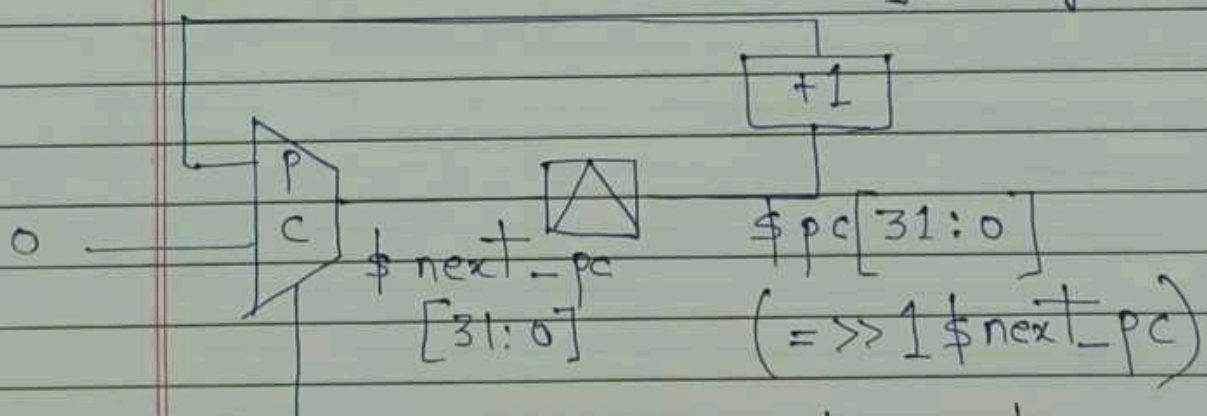 +1
P
C
0
$ next_pc
[31:0]
$pc[31:0]
(= >> 1 $next_pc)